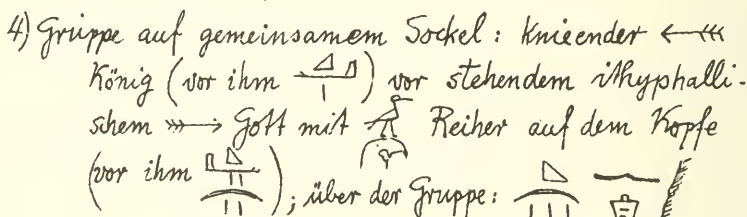 4) Gruppe auf gemeinsamem Sockel: Knieender ←
König (vor ihm ) vor stehendem ithyphalli-
schem → Gott mit Reiher auf dem Kopfe
(vor ihm ); über der Gruppe: